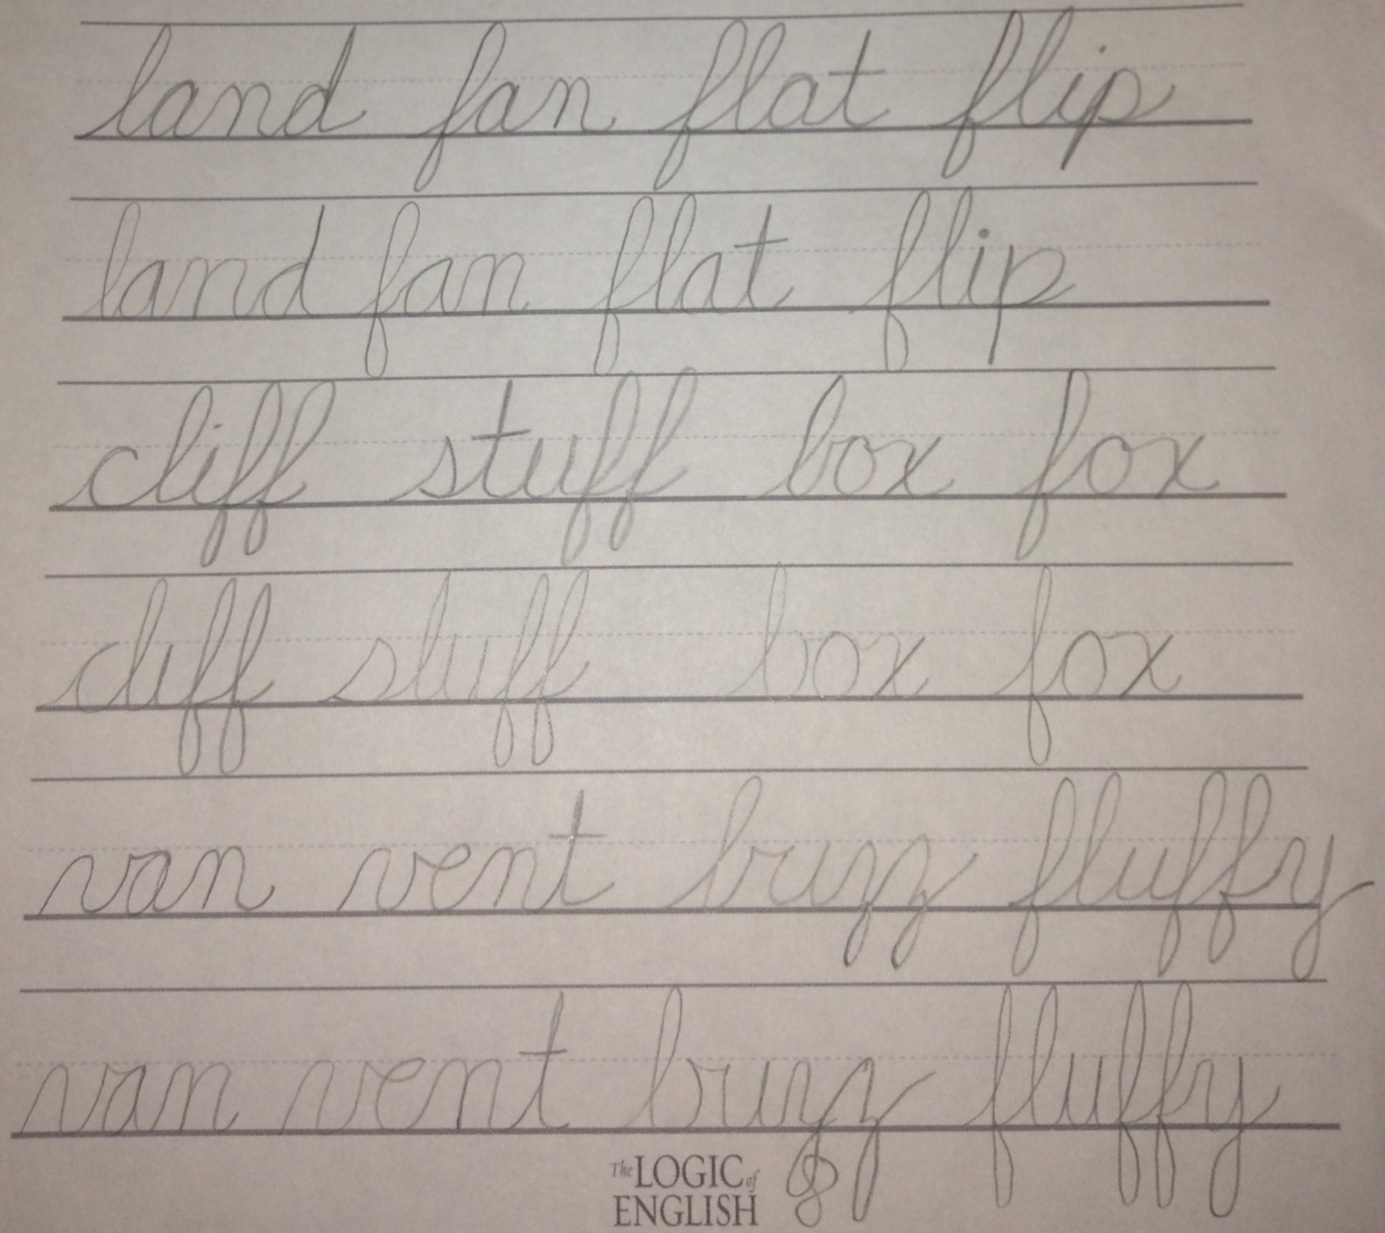 land fan flat flip
land fan flat flip
cliff stuff box fox
cliff stuff box fox
van vent buzz fluffy
van vent buzz fluffy
The LOGIC of
ENGLISH